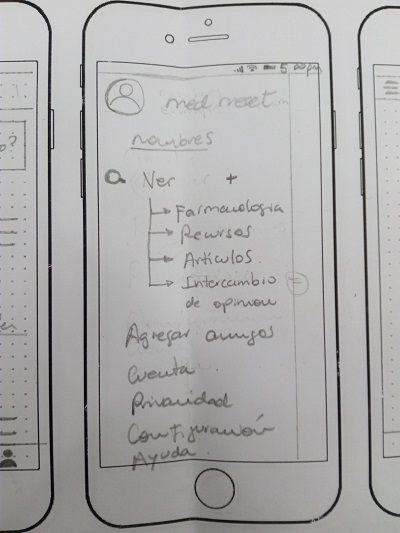 5:00 pm
med meet
nombres
Ver +
Farmacologia
Recursos
Articulos.
Intercambio
de opinion
Agregar amigos
Cuenta.
Privacidad
Configuración
Ayuda.
o?